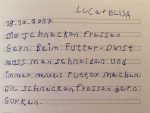 LUCA+ELISA
18.10.2017
Die schnecken fressen
Gern. Beim Futter-Dinst
muss man schneiden und
immer neues Futter machen.
Die schnecken fressen gern
Gurken.